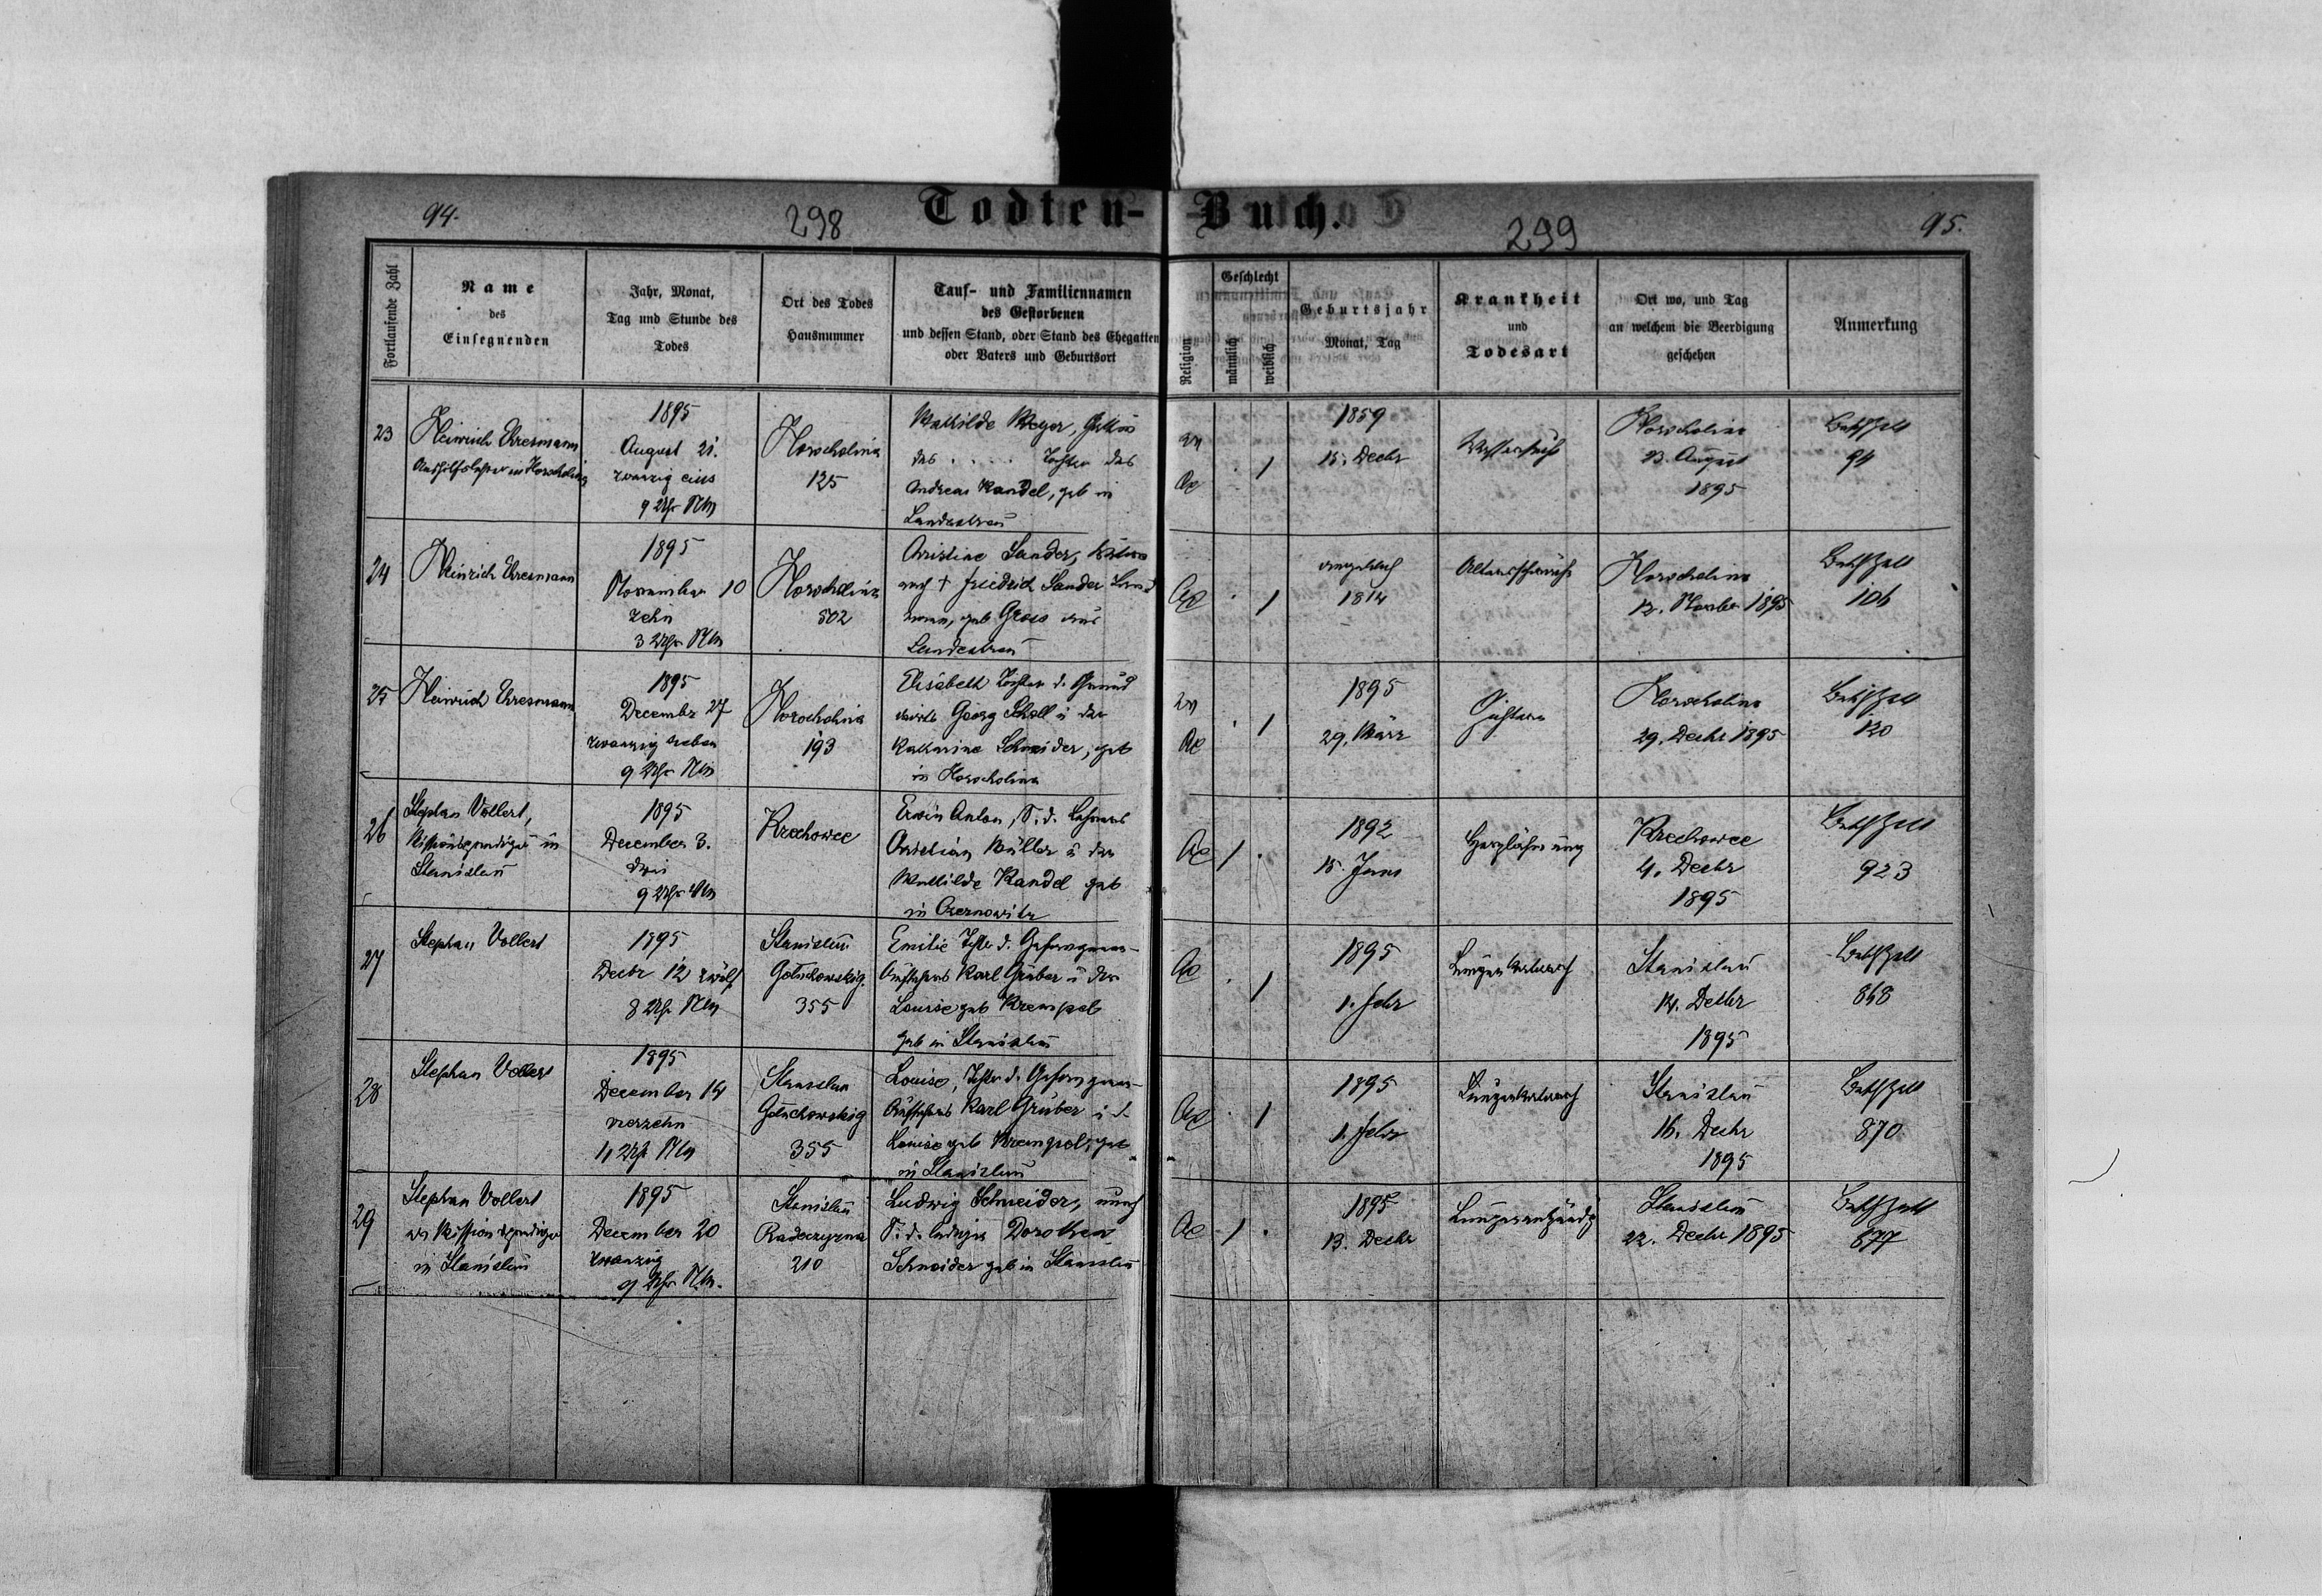 94.
298
Todten-
Buch.
299
95.
Fortlaufende Zahl
Name
des
Einsegnenden
Jahr, Monat,
Tag und Stunde des
Todes
Ort des Todes
Hausnummer
Tauf- und Familiennamen
des Gestorbenen
und dessen Stand, oder Stand des Ehegatten
oder Vaters und Geburtsort
Religion
Geschlecht
männlich
weiblich
Geburtsjahr
Monat, Tag
Krankheit
und
Todesart
Ort wo, und Tag
an welchem die Beerdigung
geschehen
Anmerkung
23
Heinrich Ehresmann
in Horocholina
1895
August 21.
zwanzig eins
9 Uhr Nm
Horocholina
125
Mathilde Meyer, Gattin
des . . . . Tochter des
Andreas Kandel, geb in
Landestreu
AC
1
1859
15. Decbr
Wassersucht
Horocholina
23. August
1895
BethZell
94
24
Heinrich Ehresmann
1895
November 10
zehn
3 Uhr Nm
Horocholina
502
Christine Sander, Witwe
nach † Friedrich Sander
geb Gross aus
Landestreu
AC
1
angeblich
1814
Altersschwäche
Horocholina
12. Novbr 1895
BethZell
106
25
Heinrich Ehresmann
1895
December 27
zwanzig sieben
9 Uhr Nm
Horocholina
193
Elisabeth Tochter d. Grund
wirts Georg Scholl u der
Katharina Schneider, geb
in Horocholina
AC
1
1895
29. März
Horocholina
29. Decbr 1895
BethZell
120
26
Stephan Vollert,
Missionsprediger in
Stanislau
1895
December 3.
drei
9 Uhr Nm
Krechowce
Erwin Anton, S. d. Lehrers
Christian Müller u der
Mathilde Kandel geb
in Czernowitz
AC
1
1892
15. Juni
Herzlähmung
Krechowce
4. Decbr
1895
BethZell
923
27
Stephan Vollert
1895
Decbr 12 zwölf
8 Uhr Nm
Stanislau
Gołuchowskig.
355
Emilie Tchtr d. Gefangenen-
Aufsehers Karl Gruber u der
Louise geb Krempel
geb in Stanislau
AC
1
1895
1. Febr
Lungenkatarrh
Stanislau
14. Decbr
1895
BethZell
868
28
Stephan Vollert
1895
December 14
vierzehn
Uhr Nm
Stanislau
Gołuchowskig
355
Louise, Tchtr d. Gefangenen-
Aufsehers Karl Gruber u d
Louise geb Krempel, geb
in Stanislau
AC
1
1895
1. Febr
Lungenkatarrh
Stanislau
16. Decbr
1895
BethZell
870
29
Stephan Vollert
ev Missionsprediger
in Stanislau
1895
December 20
zwanzig
9 Uhr Nm.
Stanislau
210
Ludwig Schneider, unehl
S. d. ledigen Dorothea
Schneider geb in Stanislau
AC
1
1895
13. Decbr
Lungenentzündg
Stanislau
22. Decbr 1895
BethZell
877